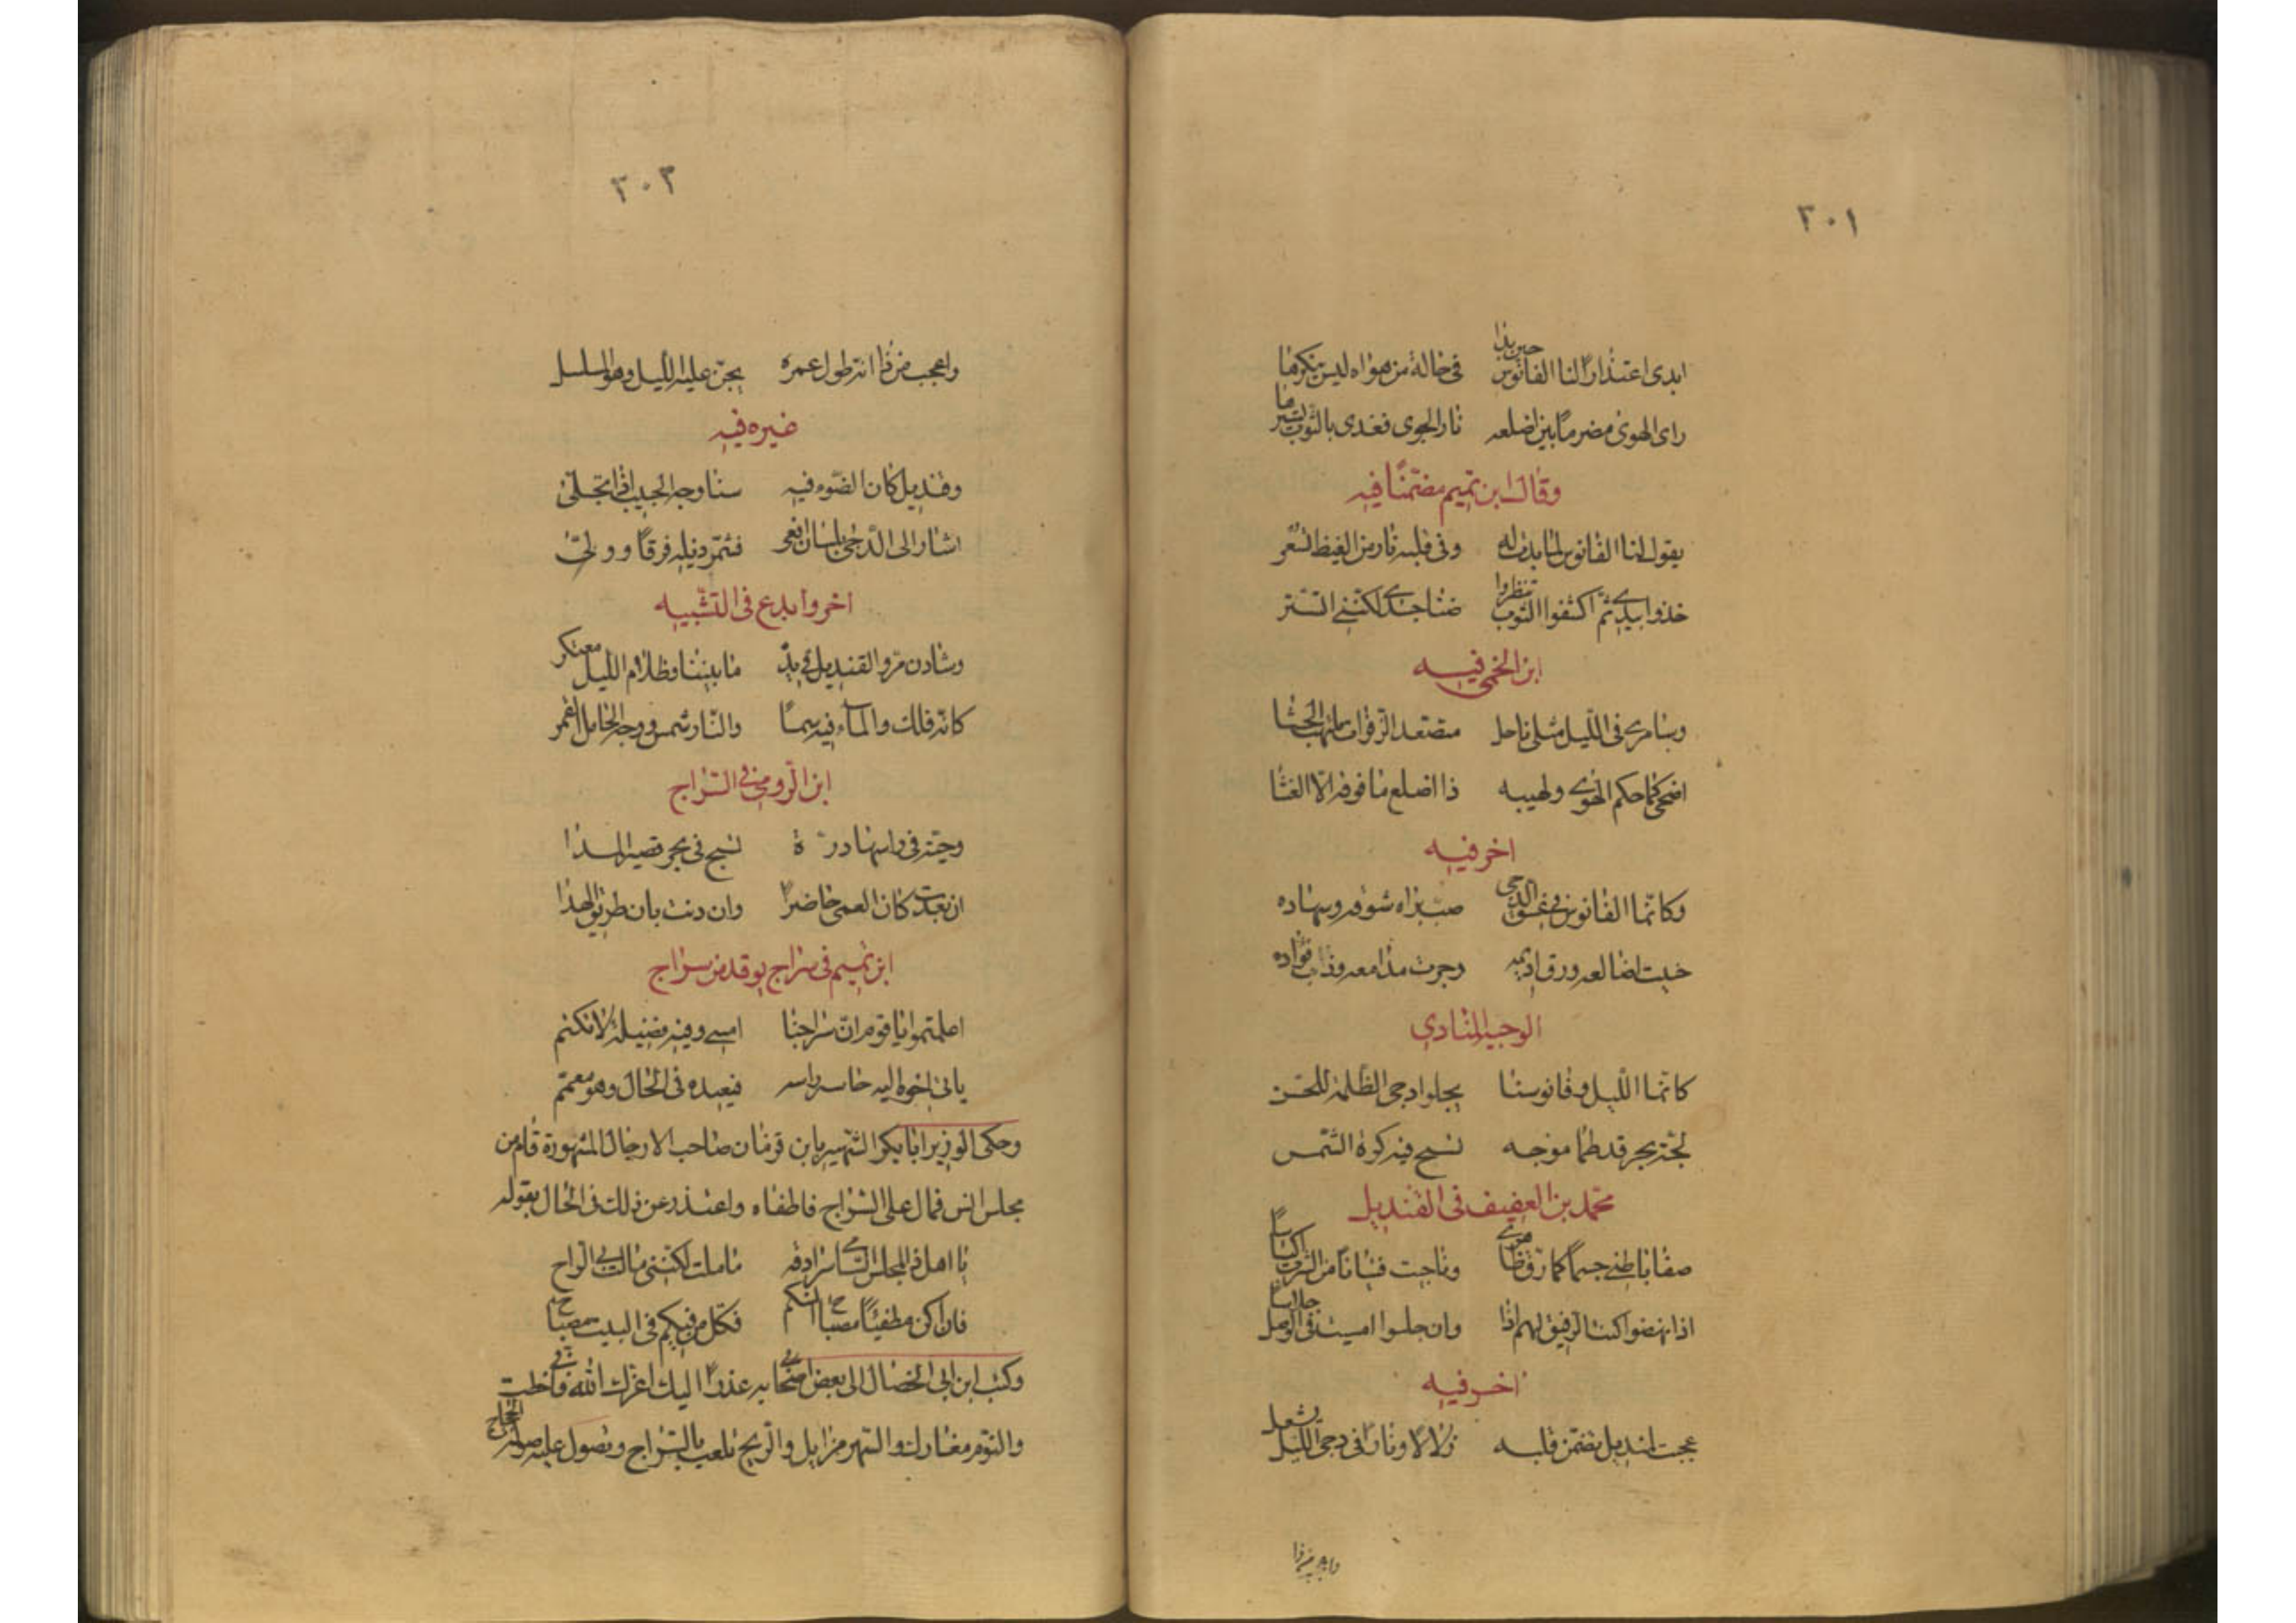 ٣٠١
ابدى اعتذارا لنا الفانوس حين بدا في حالة من هواه ليس ينكرها
راى الهوى مضرما بين اضلعه نار الجوى فغدى بالثوب يسترها
وقال ابن تميم مضمنا فيه
يقول لنا الفانوس لما بدت له وفي قلبه نار من الغيظ تسعر
خذوا بيدي ثم اكشفوا الثوب تنظروا ضنا جسدي لكنني اتستر
ابن الخمي فيه
وسامري في الليل مثلي ناحل متصعد الزفرات ملتهب الحشا
اضحى كما حكم الهوى ولهيبه ذا اضلع ما فوقه الا الغشا
اخر فيه
وكانما الفانوس في غسق الدجى صب براه شوقه وسهاده
خبت اضالعه ورق اديمه وجرت مدامعه وذاب فؤاده
الوجيه المنادي
كانما الليل وفانوسنا يجلو ادجى الظلمة للحسن
لجة بحر قد طما موجه تسبح فيه كرة الشمس
محمد بن العفيف في القنديل
صفا باطني جسما كما رق ظاهري وناجيت فتيانا من الشرب اكياسا
اذا نهضوا كنت الرفيق لهم اذا وان جلسوا امسيت في الوصل جلاسا
اخر فيه
عجبت لقنديل تضمن قلبه زلالا ونارا في دجى الليل تشعل
واعجب من ذا
٣٠٣
واعجب من ذا انه طول عمره يجن عليه الليل وهو مسلسل
غيره فيه
وقنديل كان الضوء فيه سنا وجه الحبيب اذا تجلى
اشار الى الدجى بلسان افعى فشمر ذيله فرقا وولى
اخر وابدع في التشبيه
وشادن مر والقنديل في يده ما بيننا وظلام الليل معتكر
كانه فلك والماء فيه سما والنار شمس ووجه الحامل القمر
ابن الرومي في السراج
وحية في راسها درة تسبح في بحر قصير المدا
ان بعدت كان العمى حاضرا وان دنت بان طريق الهدا
ابن تميم في سراج يوقد من سراج
اعلمتموا يا قوم ان سراجنا امسى وفيه فضيلة لا تكتم
ياتي اخوه اليه حاسر راسه فيعيده في الحال وهو معمم
وحكى الوزير ابا بكر الشهير بابن قزمان صاحب الازجال المشهورة قام من
مجلس انس فمال على السراج فاطفاه واعتذر عن ذلك في الحال بقوله
يا اهل ذا المجلس السامي سرادقه ما ملت لكنني مالت بي الراح
فان اكن مطفئا مصباح انسكم فكل من فيكم في البيت مصباح
وكتب ابن ابي الخصال الى بعض اصحابه عذرا اليك اعزك الله فاني خطت
والنوم مغازل والسهر منازل والريح تلعب بالسراج وتصول عليه صولة الحجاج